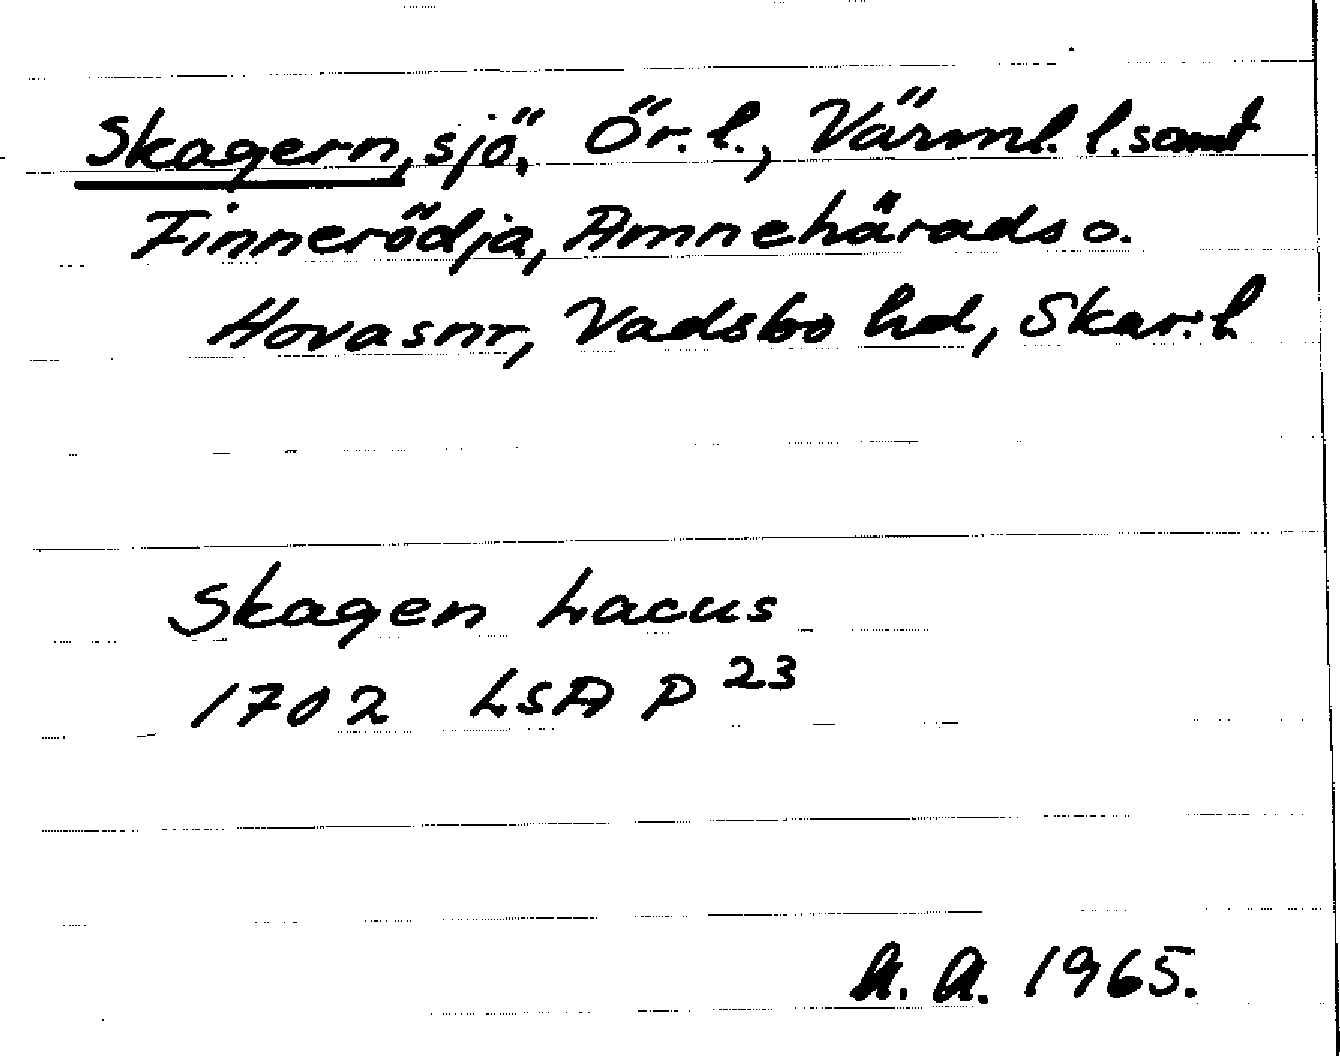 Skagern, sjö, Ör. l., Värml. l. samt
Finnerödja, Amnehärads o.
Hovasnr, Vadsbo hd, Skar. l
Skagen Lacus
1702 LSA P 23
A. A. 1965.